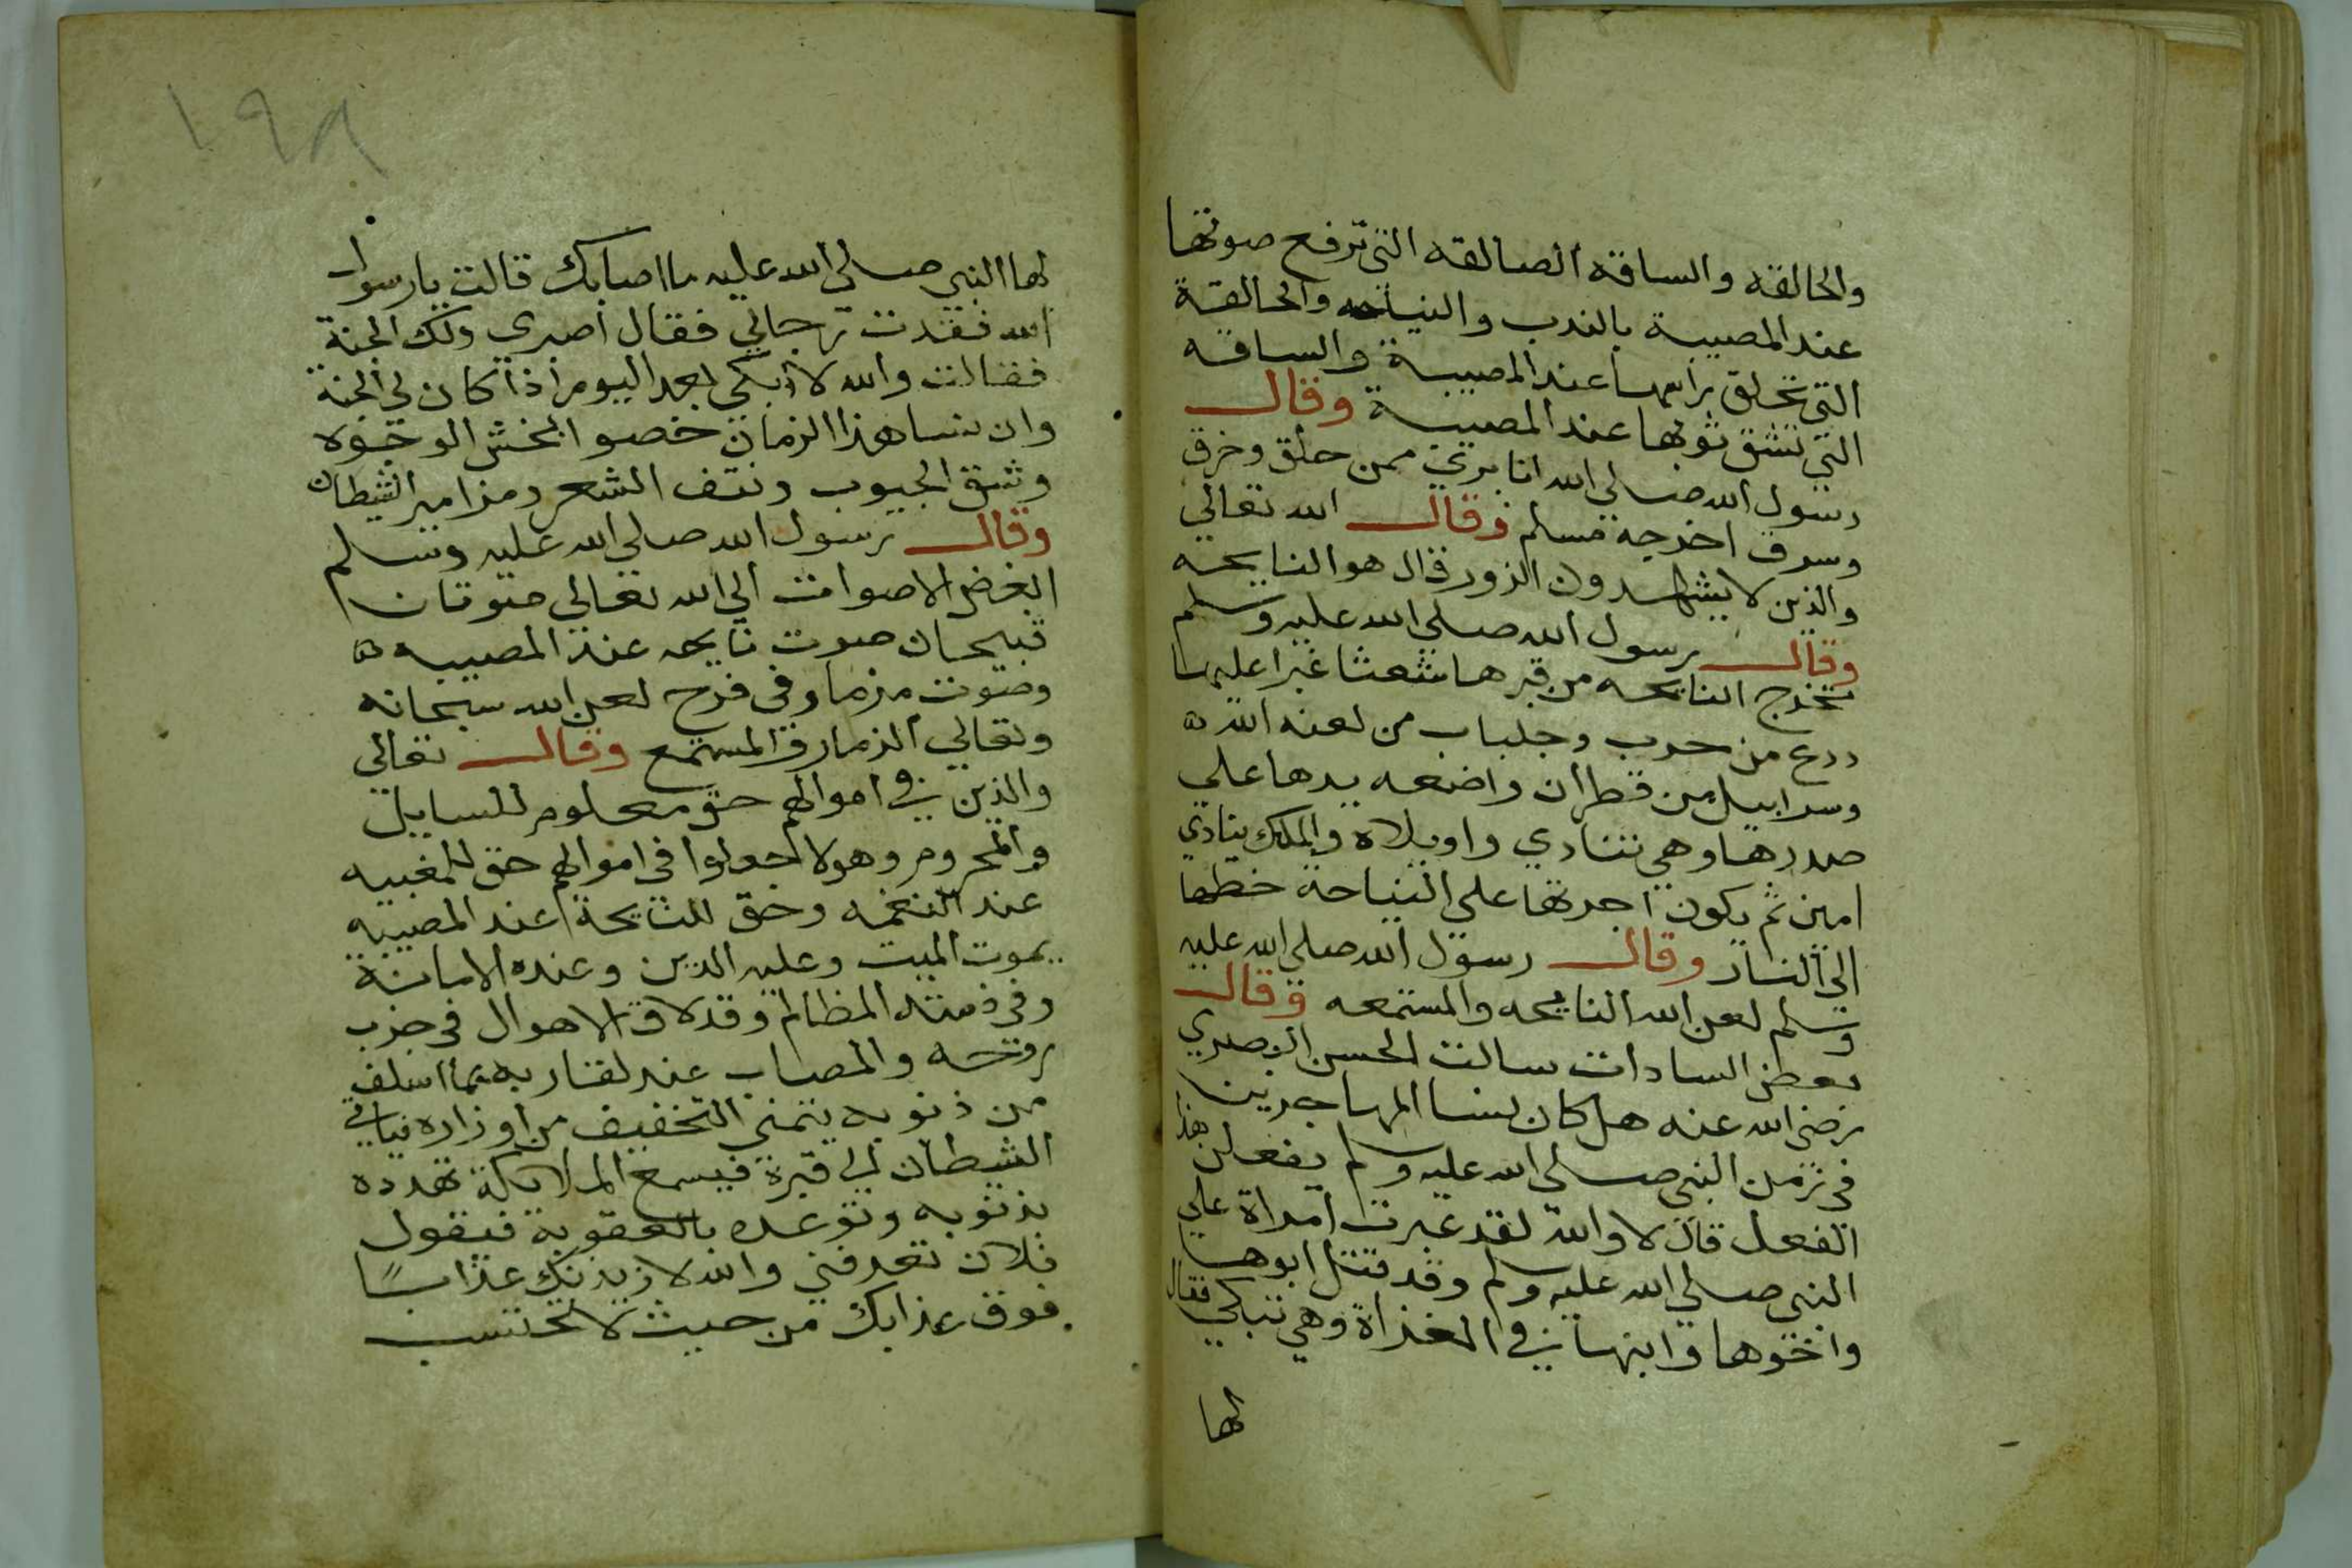 والحالقه والساقه الصالقه التي ترفع صوتها
عند المصيبة بالندب والنياحه والحالقة
التي تحلق راسها عند المصيبة والساقه
التي تشق ثوبها عند المصيبة وقال
رسول الله صلى الله انا بري ممن حلق وخرق
وسرق اخرجه مسلم وقال الله تعالي
والذين لا يشهدون الزور قال هو النايحه
وقال رسول الله صلى الله عليه وسلم
تخرج النايحه من قبرها شعثا غبرا عليها
درع من حرب وجلباب من لعنه الله ه
وسرابيل من قطران واضعه يدها علي
صدرها وهي تنادي واويلاه والملك ينادي
امين ثم يكون اجرتها علي النياحة حظها
الي النار وقال رسول الله صلى الله عليه
وسلم لعن الله النايحه والمستمعه وقال
بعض السادات سالت الحسن البصري
رضى الله عنه هل كان نسا المهاجرين
في زمن النبي صلى الله عليه وسلم يفعلن هذ
الفعل قال لا والله لقد عبرت امراة علي
النبي صلي الله عليه وسلم وقد قتل ابوها
واخوها وابنها في الغزاة وهي تبكي فقال
لها
١٩٨
لها النبي صلى الله عليه ما اصابك قالت يا رسول
الله فقدت رجالي فقال اصبري ولك الجنة
فقالت والله لا ابكي بعد اليوم اذا كان لي الجنة
وان نسا هذا الزمان خصوا بخمش الوجوه
وشق الجيوب ونتف الشعر ومزامير الشيطان
وقال رسول الله صلى الله عليه وسلم
ابغض الاصوات الي الله تعالى صوتان
قبيحان صوت نايحه عند المصيبه ه
وصوت مزمار في فرح لعن الله سبحانه
وتعالي الزمار والمستمع وقال تعالي
والذين في اموالهم حق معلوم للسايل
والمحروم وهولا جعلوا في اموالهم حق للمغنيه
عند النغمه وحق للنايحة عند المصيبه
يموت الميت وعليه الدين وعنده الامانة
وفي ذمته المظالم وقد لاق الاهوال في
روحه والمصاب عند لقا ربه بما اسلف
من ذنوبه يتمني التخفيف من اوزاره فياتي
الشيطان الي قبره فيسمع الملايكة تهدده
بذنوبه وتوعده بالعقوبة فيقول
فلان تعرفني والله لازيدنك عذابًا
فوق عذابك من حيث لا تحتسب